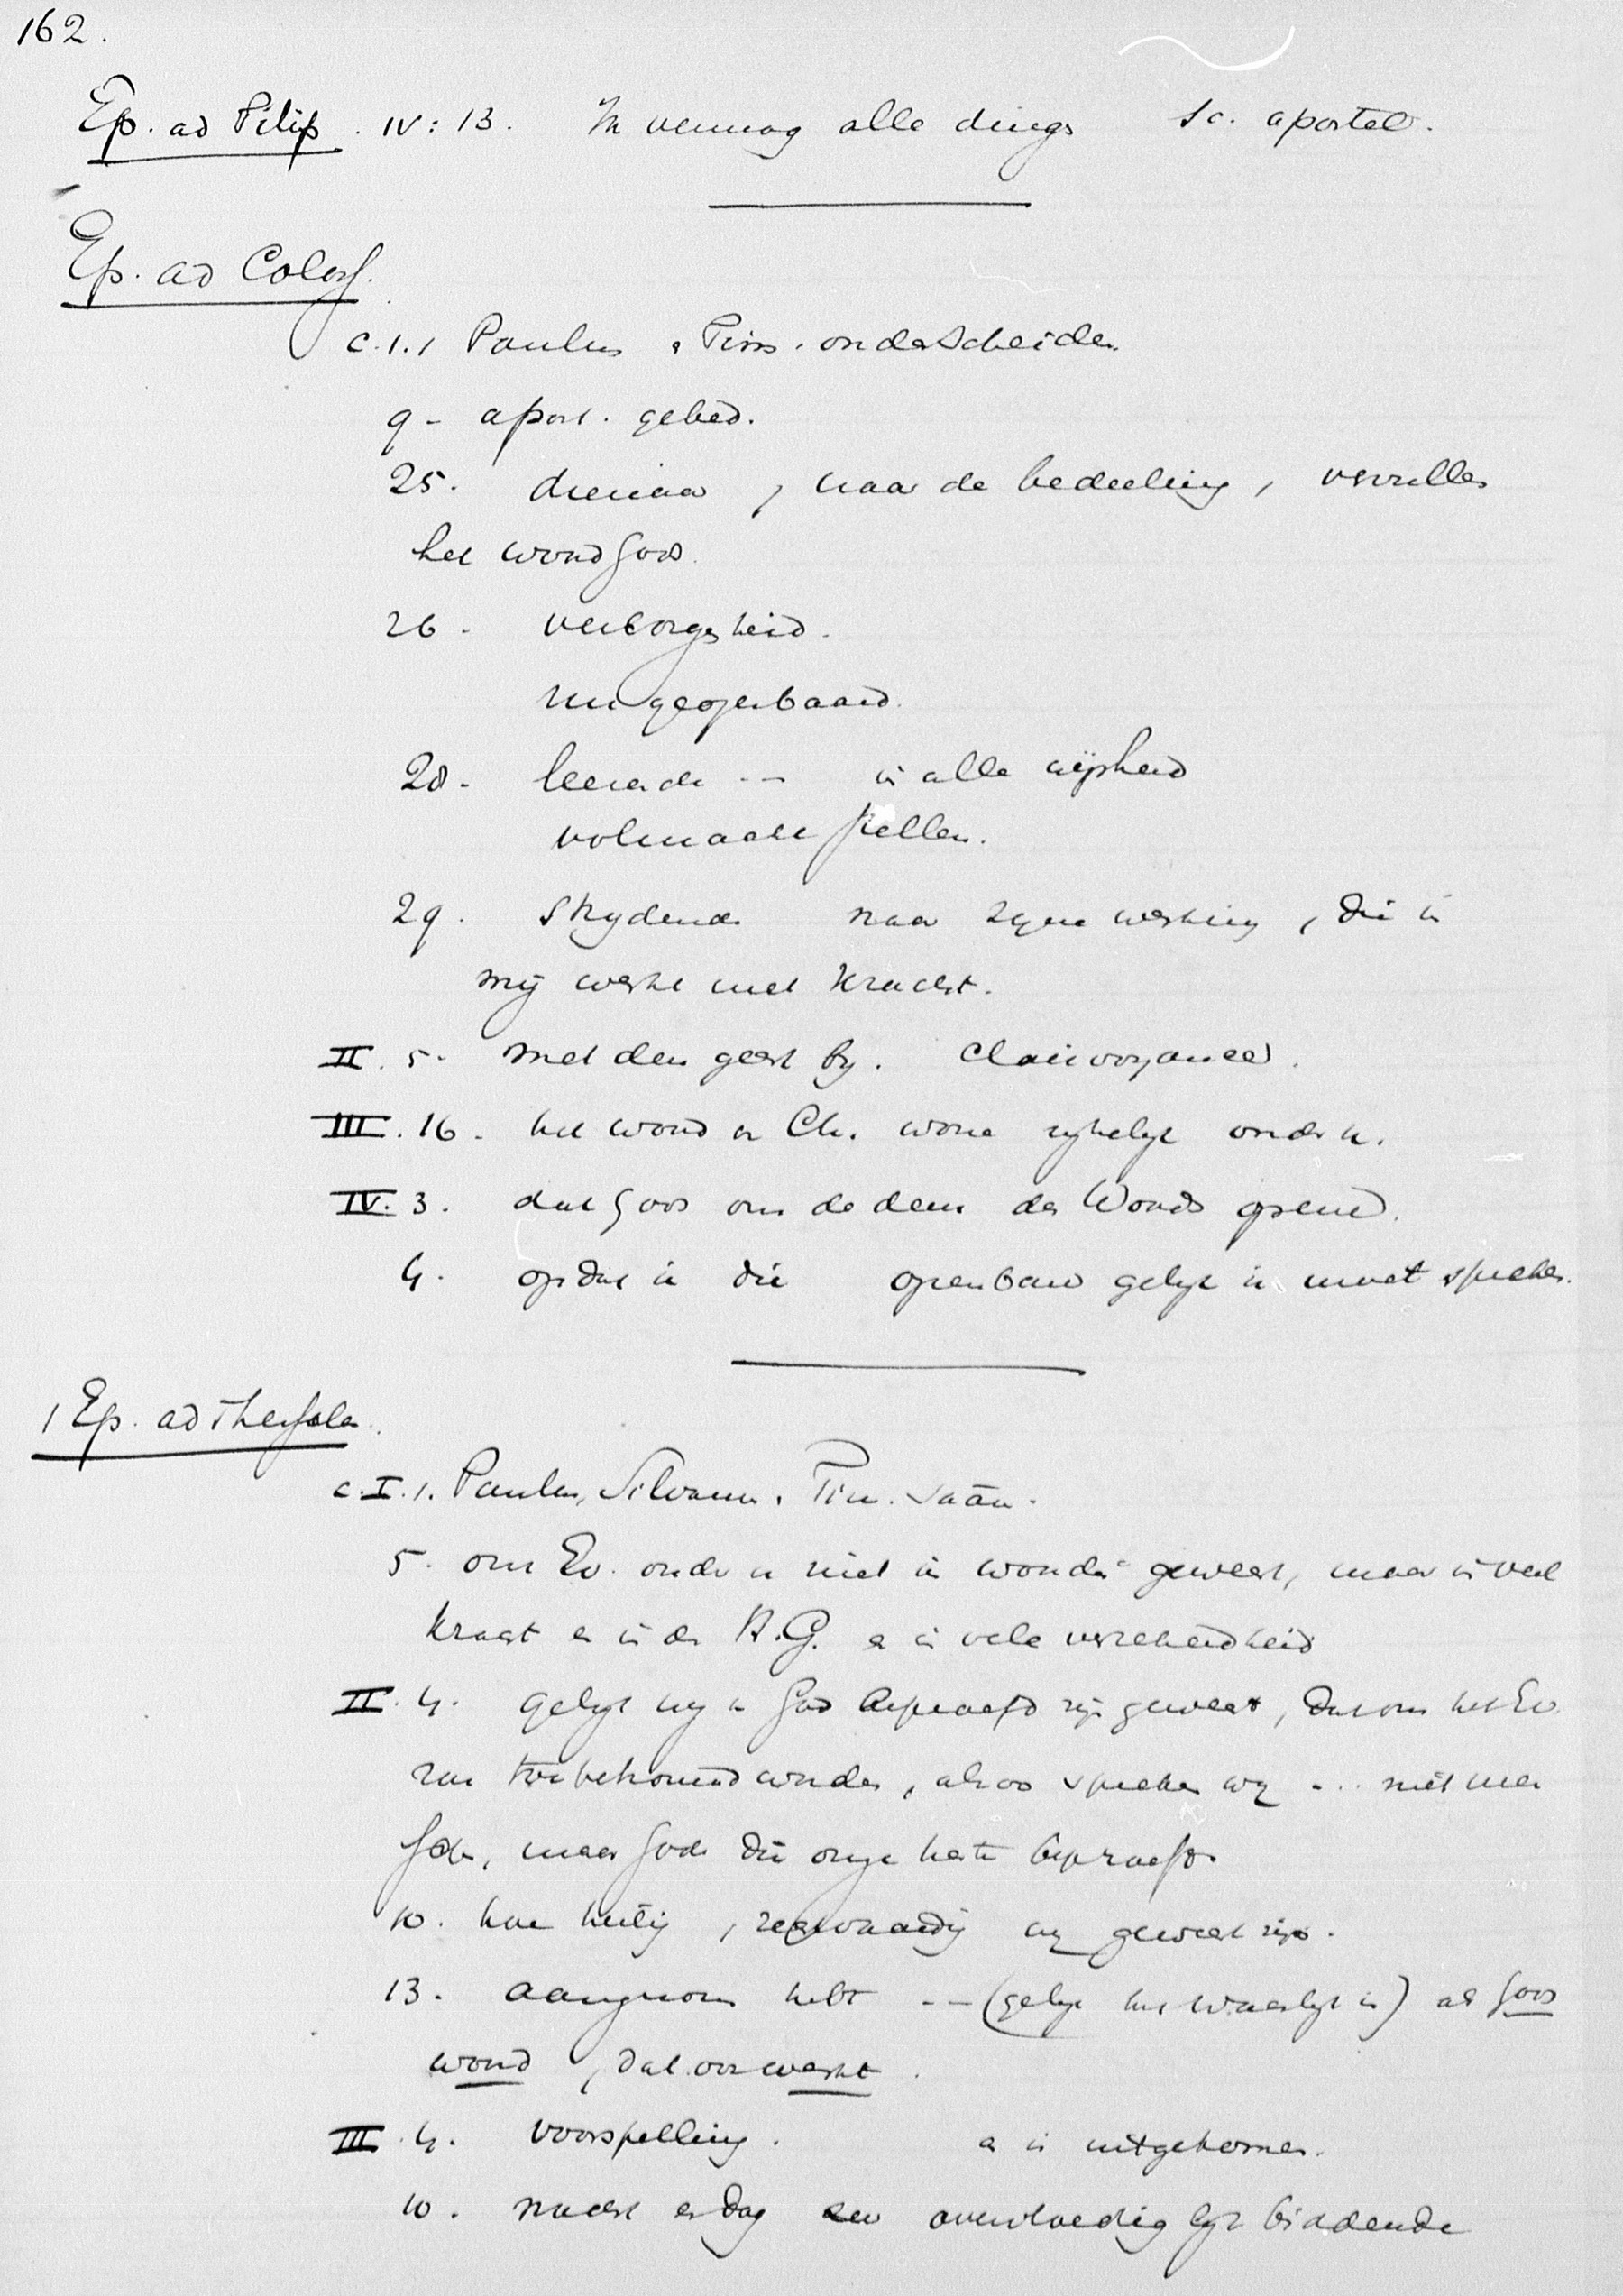 162.
Ep. ad Pilip. IV: 13. Ik vermag alle dingen sc. apostel.
Ep. ad Coloss.
c. 1. 1 Paulus & Tim. onderscheiden.
9 - apost. gebed.
25. dienaar, naar de bedeeling, vervullen
het woord Gods.
26 - verborgenheid.
nu geopenbaard.
28 - leerende -- in alle wijsheid
volmaakt stellen.
29. strydende naar zyne werking, die in
mij werkt met kracht.
II. 5. met den geest by. Clairvoyance.
III. 16. het woord v Ch. wone rykelyk onder u.
IV. 3. dat God ons de deur des Woords opene.
4. opdat ik die openbare gelyk ik moet spreken.
1 Ep. ad Thessalon.
c. I. 1. Paulus, Silvanus, Tim. saam.
5. ons Ev. onder u niet in woorden geweest, maar in veel
kracht en in den H.G. en in vele verzekerdheid
II. 4. gelyk wy v God beproefd zyn geweest, dat ons het Ev.
zou toebetrouwd worden, alzoo spreken wy ... niet men
schen, maar Gode die onze harten beproeft.
10. hoe heilig, regtvaardig wy geweest zyn.
13. aangenomen hebt -- (gelyk het waarlyk is) als Gods
woord, dat ook werkt.
III. 4. voorspelling. en is uitgekomen.
10. nacht en dag zeer overvloediglyk biddende